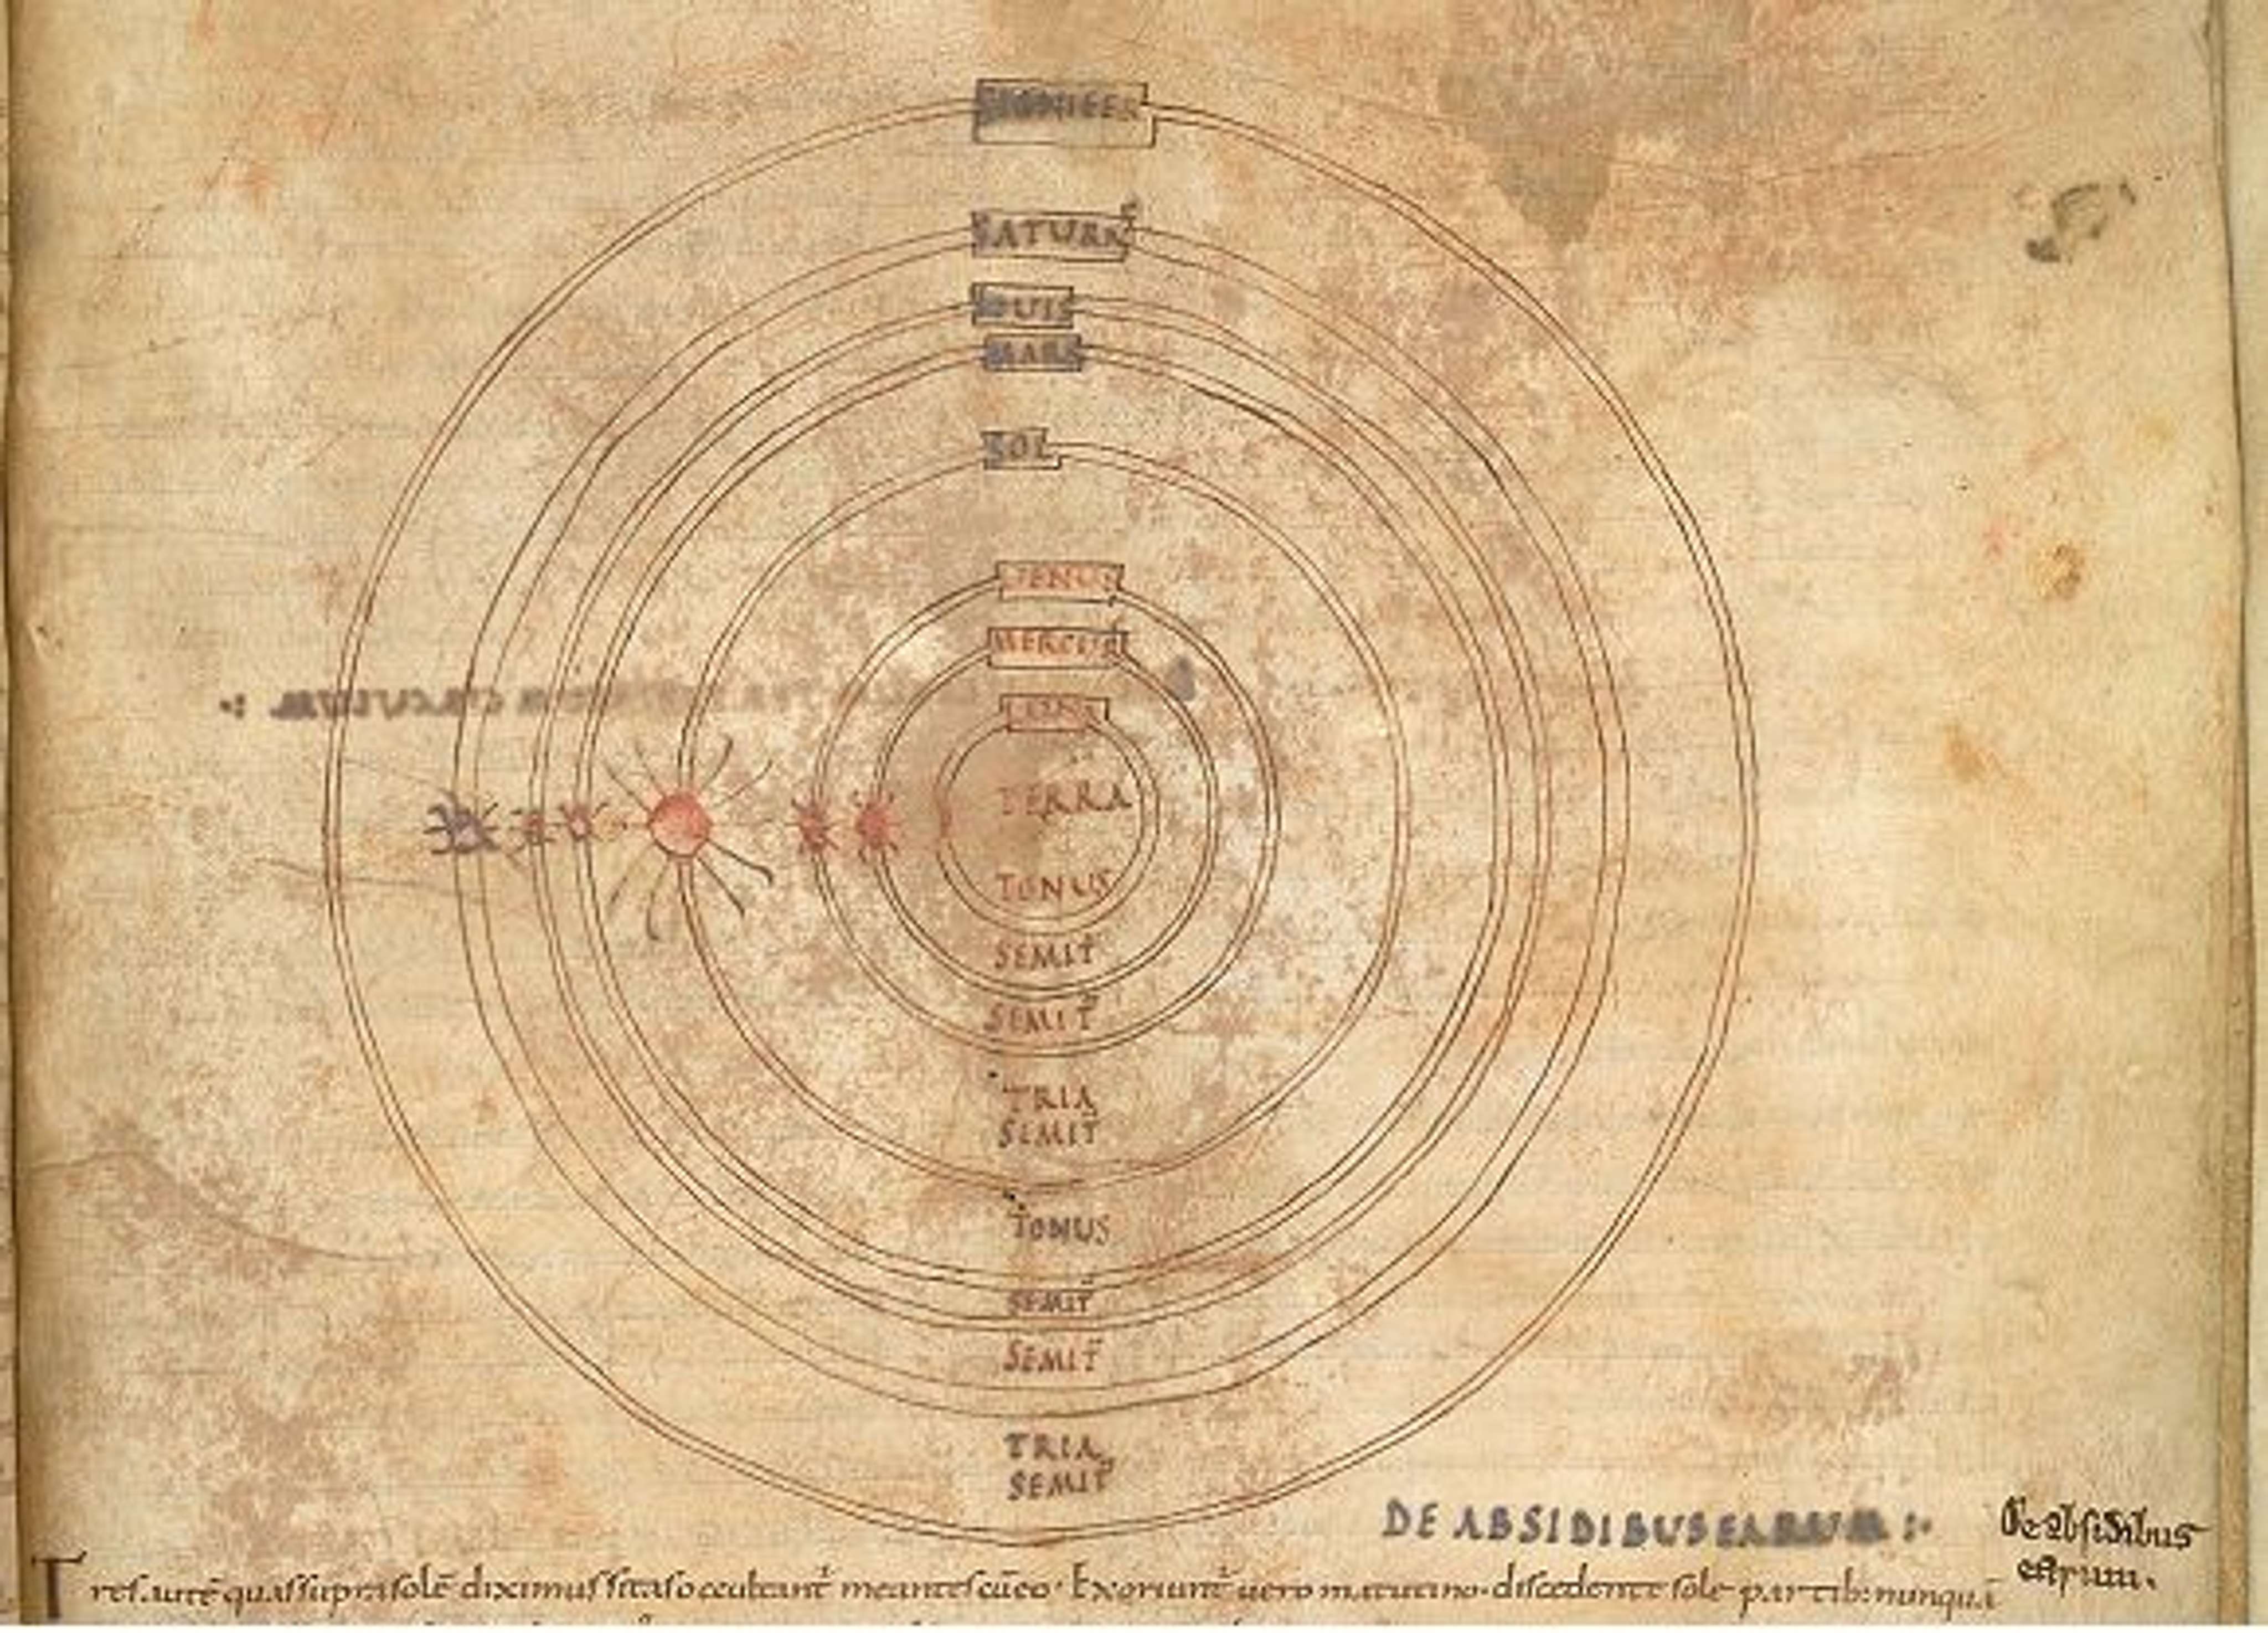 SIGNIFER
SATURN
IOUIS
MARS
SOL
UENUS
MERCUR
LUNA
TERRA
TONUS
SEMIT
SEMIT
TRIA
SEMIT
TONUS
SEMIT
SEMIT
TRIA
SEMIT
DE ABSIDIBUS EARUM :·
De absidibus
Tres autē quas supra solē diximus sitas occultant̄ meantes cū eo· Exoriunt̄ uero matutino· discedente sole partib: nunquā